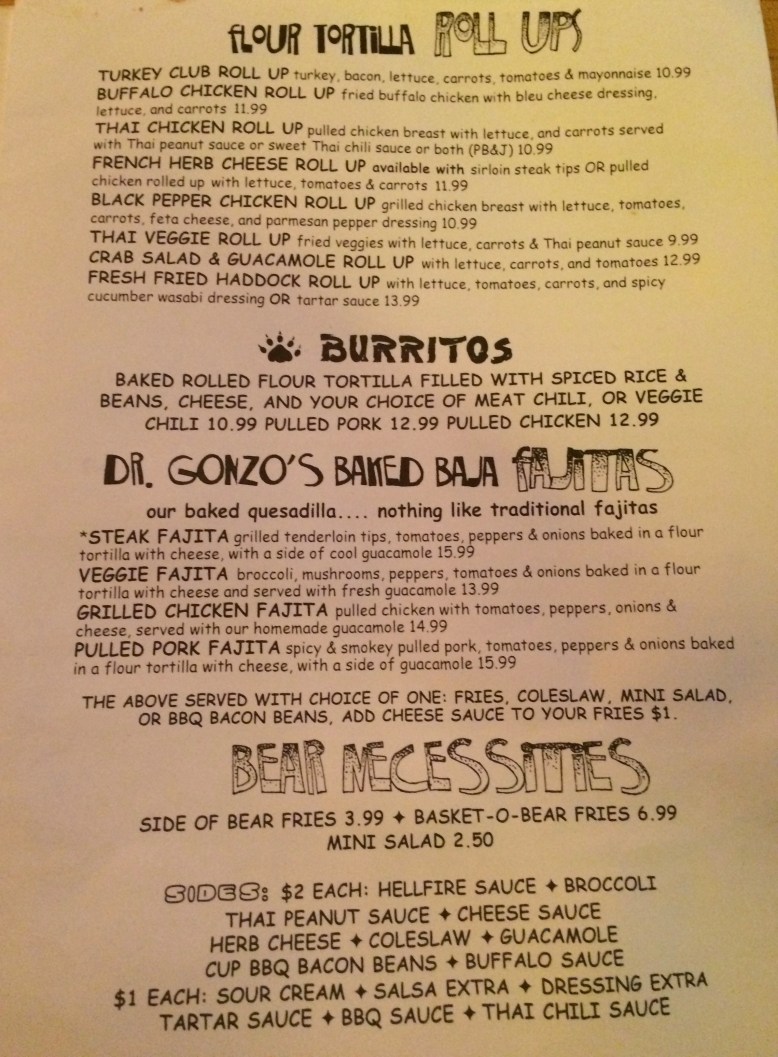 FLOUR TORTILLA ROLL UPS
TURKEY CLUB ROLL UP turkey, bacon, lettuce, carrots, tomatoes & mayonnaise 10.99
BUFFALO CHICKEN ROLL UP fried buffalo chicken with bleu cheese dressing,
lettuce, and carrots 11.99
THAI CHICKEN ROLL UP pulled chicken breast with lettuce, and carrots served
with Thai peanut sauce or sweet Thai chili sauce or both (PB&J) 10.99
FRENCH HERB CHEESE ROLL UP available with sirloin steak tips OR pulled
chicken rolled up with lettuce, tomatoes & carrots 11.99
BLACK PEPPER CHICKEN ROLL UP grilled chicken breast with lettuce, tomatoes,
carrots, feta cheese, and parmesan pepper dressing 10.99
THAI VEGGIE ROLL UP fried veggies with lettuce, carrots & Thai peanut sauce 9.99
CRAB SALAD & GUACAMOLE ROLL UP with lettuce, carrots, and tomatoes 12.99
FRESH FRIED HADDOCK ROLL UP with lettuce, tomatoes, carrots, and spicy
cucumber wasabi dressing OR tartar sauce 13.99
BURRITOS
BAKED ROLLED FLOUR TORTILLA FILLED WITH SPICED RICE &
BEANS, CHEESE, AND YOUR CHOICE OF MEAT CHILI, OR VEGGIE
CHILI 10.99 PULLED PORK 12.99 PULLED CHICKEN 12.99
DR. GONZO'S BAKED BAJA FAJITAS
our baked quesadilla.... nothing like traditional fajitas
*STEAK FAJITA grilled tenderloin tips, tomatoes, peppers & onions baked in a flour
tortilla with cheese, with a side of cool guacamole 15.99
VEGGIE FAJITA broccoli, mushrooms, peppers, tomatoes & onions baked in a flour
tortilla with cheese and served with fresh guacamole 13.99
GRILLED CHICKEN FAJITA pulled chicken with tomatoes, peppers, onions &
cheese, served with our homemade guacamole 14.99
PULLED PORK FAJITA spicy & smokey pulled pork, tomatoes, peppers & onions baked
in a flour tortilla with cheese, with a side of guacamole 15.99
THE ABOVE SERVED WITH CHOICE OF ONE: FRIES, COLESLAW, MINI SALAD,
OR BBQ BACON BEANS, ADD CHEESE SAUCE TO YOUR FRIES $1.
BEAR NECESSITIES
SIDE OF BEAR FRIES 3.99 ✦ BASKET-O-BEAR FRIES 6.99
MINI SALAD 2.50
SIDES: $2 EACH: HELLFIRE SAUCE ✦ BROCCOLI
THAI PEANUT SAUCE ✦ CHEESE SAUCE
HERB CHEESE ✦ COLESLAW ✦ GUACAMOLE
CUP BBQ BACON BEANS ✦ BUFFALO SAUCE
$1 EACH: SOUR CREAM ✦ SALSA EXTRA ✦ DRESSING EXTRA
TARTAR SAUCE ✦ BBQ SAUCE ✦ THAI CHILI SAUCE